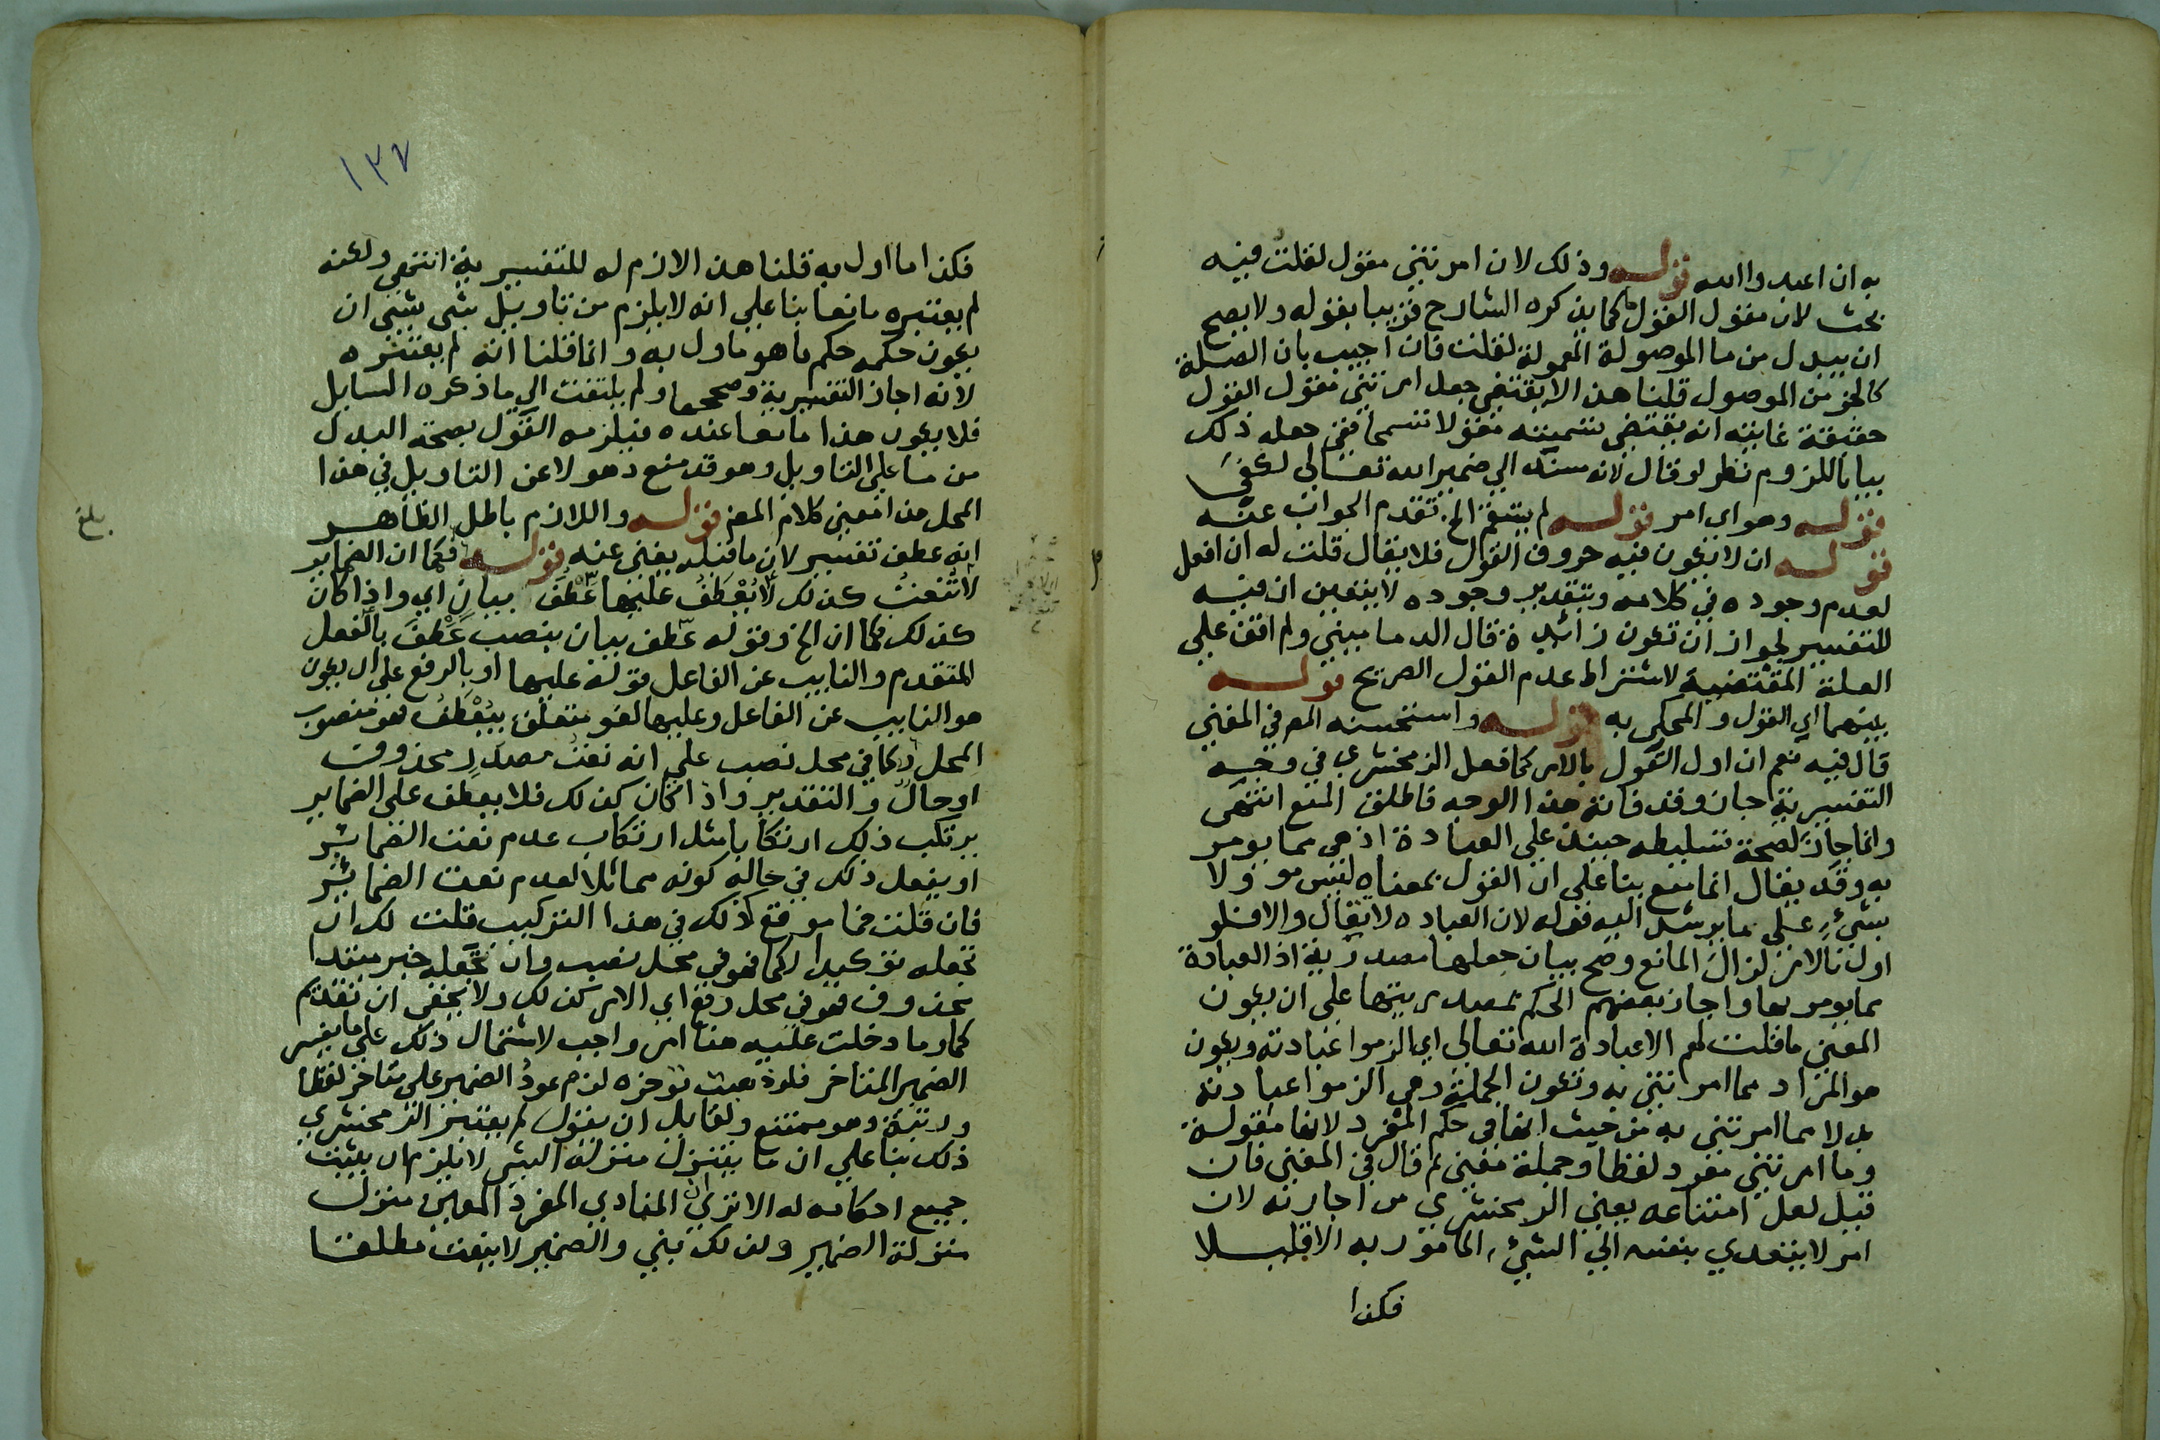 به ان اعبدوا الله قوله وذلك لان امرتني مقول لقلت فيه
بحث لان مقول القول كما يذكره الشارح قريبا بقوله ولا يصح
ان يبدل من ما الموصولة المعمولة لقلت فان اجيب بان الصلة
كالجز من الموصول قلنا هذا لا يقتضي جعل امرتني مقول القول
حقيقة غايته انه يقتضي تسميته مقولا تسمحا ففي جعله ذلك
بيانا للزوم نظر لو قال لانه مسند الى ضمير الله تعالى لكفى
قوله وهو اي امر قوله لم يستقم الخ تقدم الجواب عنه
قوله ان لا يكون فيه حروف القول فلا يقال قلت له ان افعل
لعدم وجوده في كلامه وبتقدير وجوده لا يتعين ان فيه
للتفسير لجواز ان تكون زائدة قال الدماميني ولم اقف على
العلة المقتضية لاشتراط عدم القول الصريح قوله
بينهما اي القول والمحكي به قوله واستحسنه المص في المغني
قال فيه نعم ان اول القول بالامر كما فعل الزمخشري في وجه
التفسيرية جاز وقد فاته هذا الوجه فاطلق المنع انتهى
وانما جاز لصحة تسليطه حينئذ على العبادة اذ هي مما يومر
به وقد يقال انما منع بنا على ان القول بمعناه ليس مؤولا
بشيء على ما يرشد اليه قوله لان العباده لا تقال والا فلو
اول بالامر لزال المانع وصح بيان جعلها مصدرية اذ العبادة
مما يومر بها واجاز بعضهم الحكم بمصدريتها على ان يكون
المعنى ما قلت لهم الا عبادة الله تعالى اي الزموا عبادته ويكون
هو المراد مما امرتني به وتكون الجملة وهي الزموا عبادته
بدلا مما امرتني به من حيث انها في حكم المفرد لانها مقولة
وما امرتني مفرد لفظا وجملة معنى ثم قال في المغني فان
قيل لعل امتناعه يعني الزمخشري من اجازته لان
امر لا يتعدي بنفسه الي الشيء المامور به الا قليلا
فكذا
١٣٧
فكذا ما اول به قلنا هذا لازم له للتفسيرية انتهى ولكنه
لم يعتبره مانعا بنا على انه لا يلزم من تاويل شي بشي ان
يكون حكمه حكم ما هو ماول به وانما قلنا انه لم يعتبره
لانه اجاز التفسيرية وصححها ولم يلتفت الي ما ذكره السايل
فلا يكون هذا مانعا عنده فيلزمه القول بصحة البدل
من ما على التاويل وهو قد منع ذهولا عن التاويل في هذا
المحل هذا معنى كلام المغني قوله واللازم باطل الظاهر
انه عطف تفسير لان ما قبله يغني عنه قوله فكما ان الضماير
لا تنعت كذلك لا يعطف عليها عطف بيان اي واذا كان
كذلك فكما ان الخ وقوله عطف بيان بنصب عطف بالفعل
المتقدم والنايب عن الفاعل قوله عليها او بالرفع على ان يكون
هو النايب عن الفاعل وعليها لغو متعلق بيعطف هو منصوب
المحل وكما في محل نصب على انه نعت مصدر محذوف
او حال والتقدير واذا كان كذلك فلا يعطف على الضماير
يرتكب ذلك ارتكابا مثل ارتكاب عدم نعت الضمائر
او يفعل ذلك في حالة كونه مماثلا لعدم نعت الضمائر
فان قلت فما موقع كذلك في هذا التركيب قلت لك ان
تجعله توكيدا لكما فهو في محل نصب وان تجعله خبر مبتدا
محذوف فهو في محل رفع اي الامر كذلك ولا يخفى ان تقديم
كما وما دخلت عليه هنا امر واجب لاشتمال ذلك على ما يفسر
الضمير المتاخر فلو ذهبت توخره لزم عود الضمير على متاخر لفظا
ورتبة وهو ممتنع ولقايل ان يقول لم يعتبر الزمخشري
ذلك بنا على ان ما يتنزل منزلة الشي لا يلزم ان يثبت
جميع احكامه له الا ترى ان المنادي المفرد المعين منزل
منزلة الضمير ولذلك بني والضمير لا ينعت مطلقا
بلغ